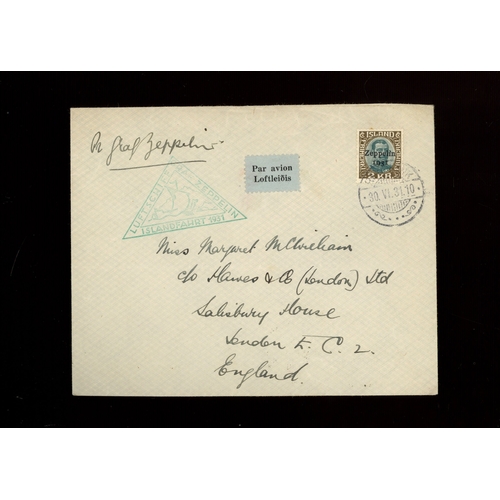 pr Graf Zeppelin
Par avion
Loftleiðis
ÍSLAND
Zeppelin
1931
2 KR.
30.VI.31.10
LUFTSCHIFF GRAF ZEPPELIN
ISLANDFAHRT 1931
Miss Margaret McWilliam
c/o Hawes & Co (London) Ltd
Salisbury House
London E.C.2.
England.